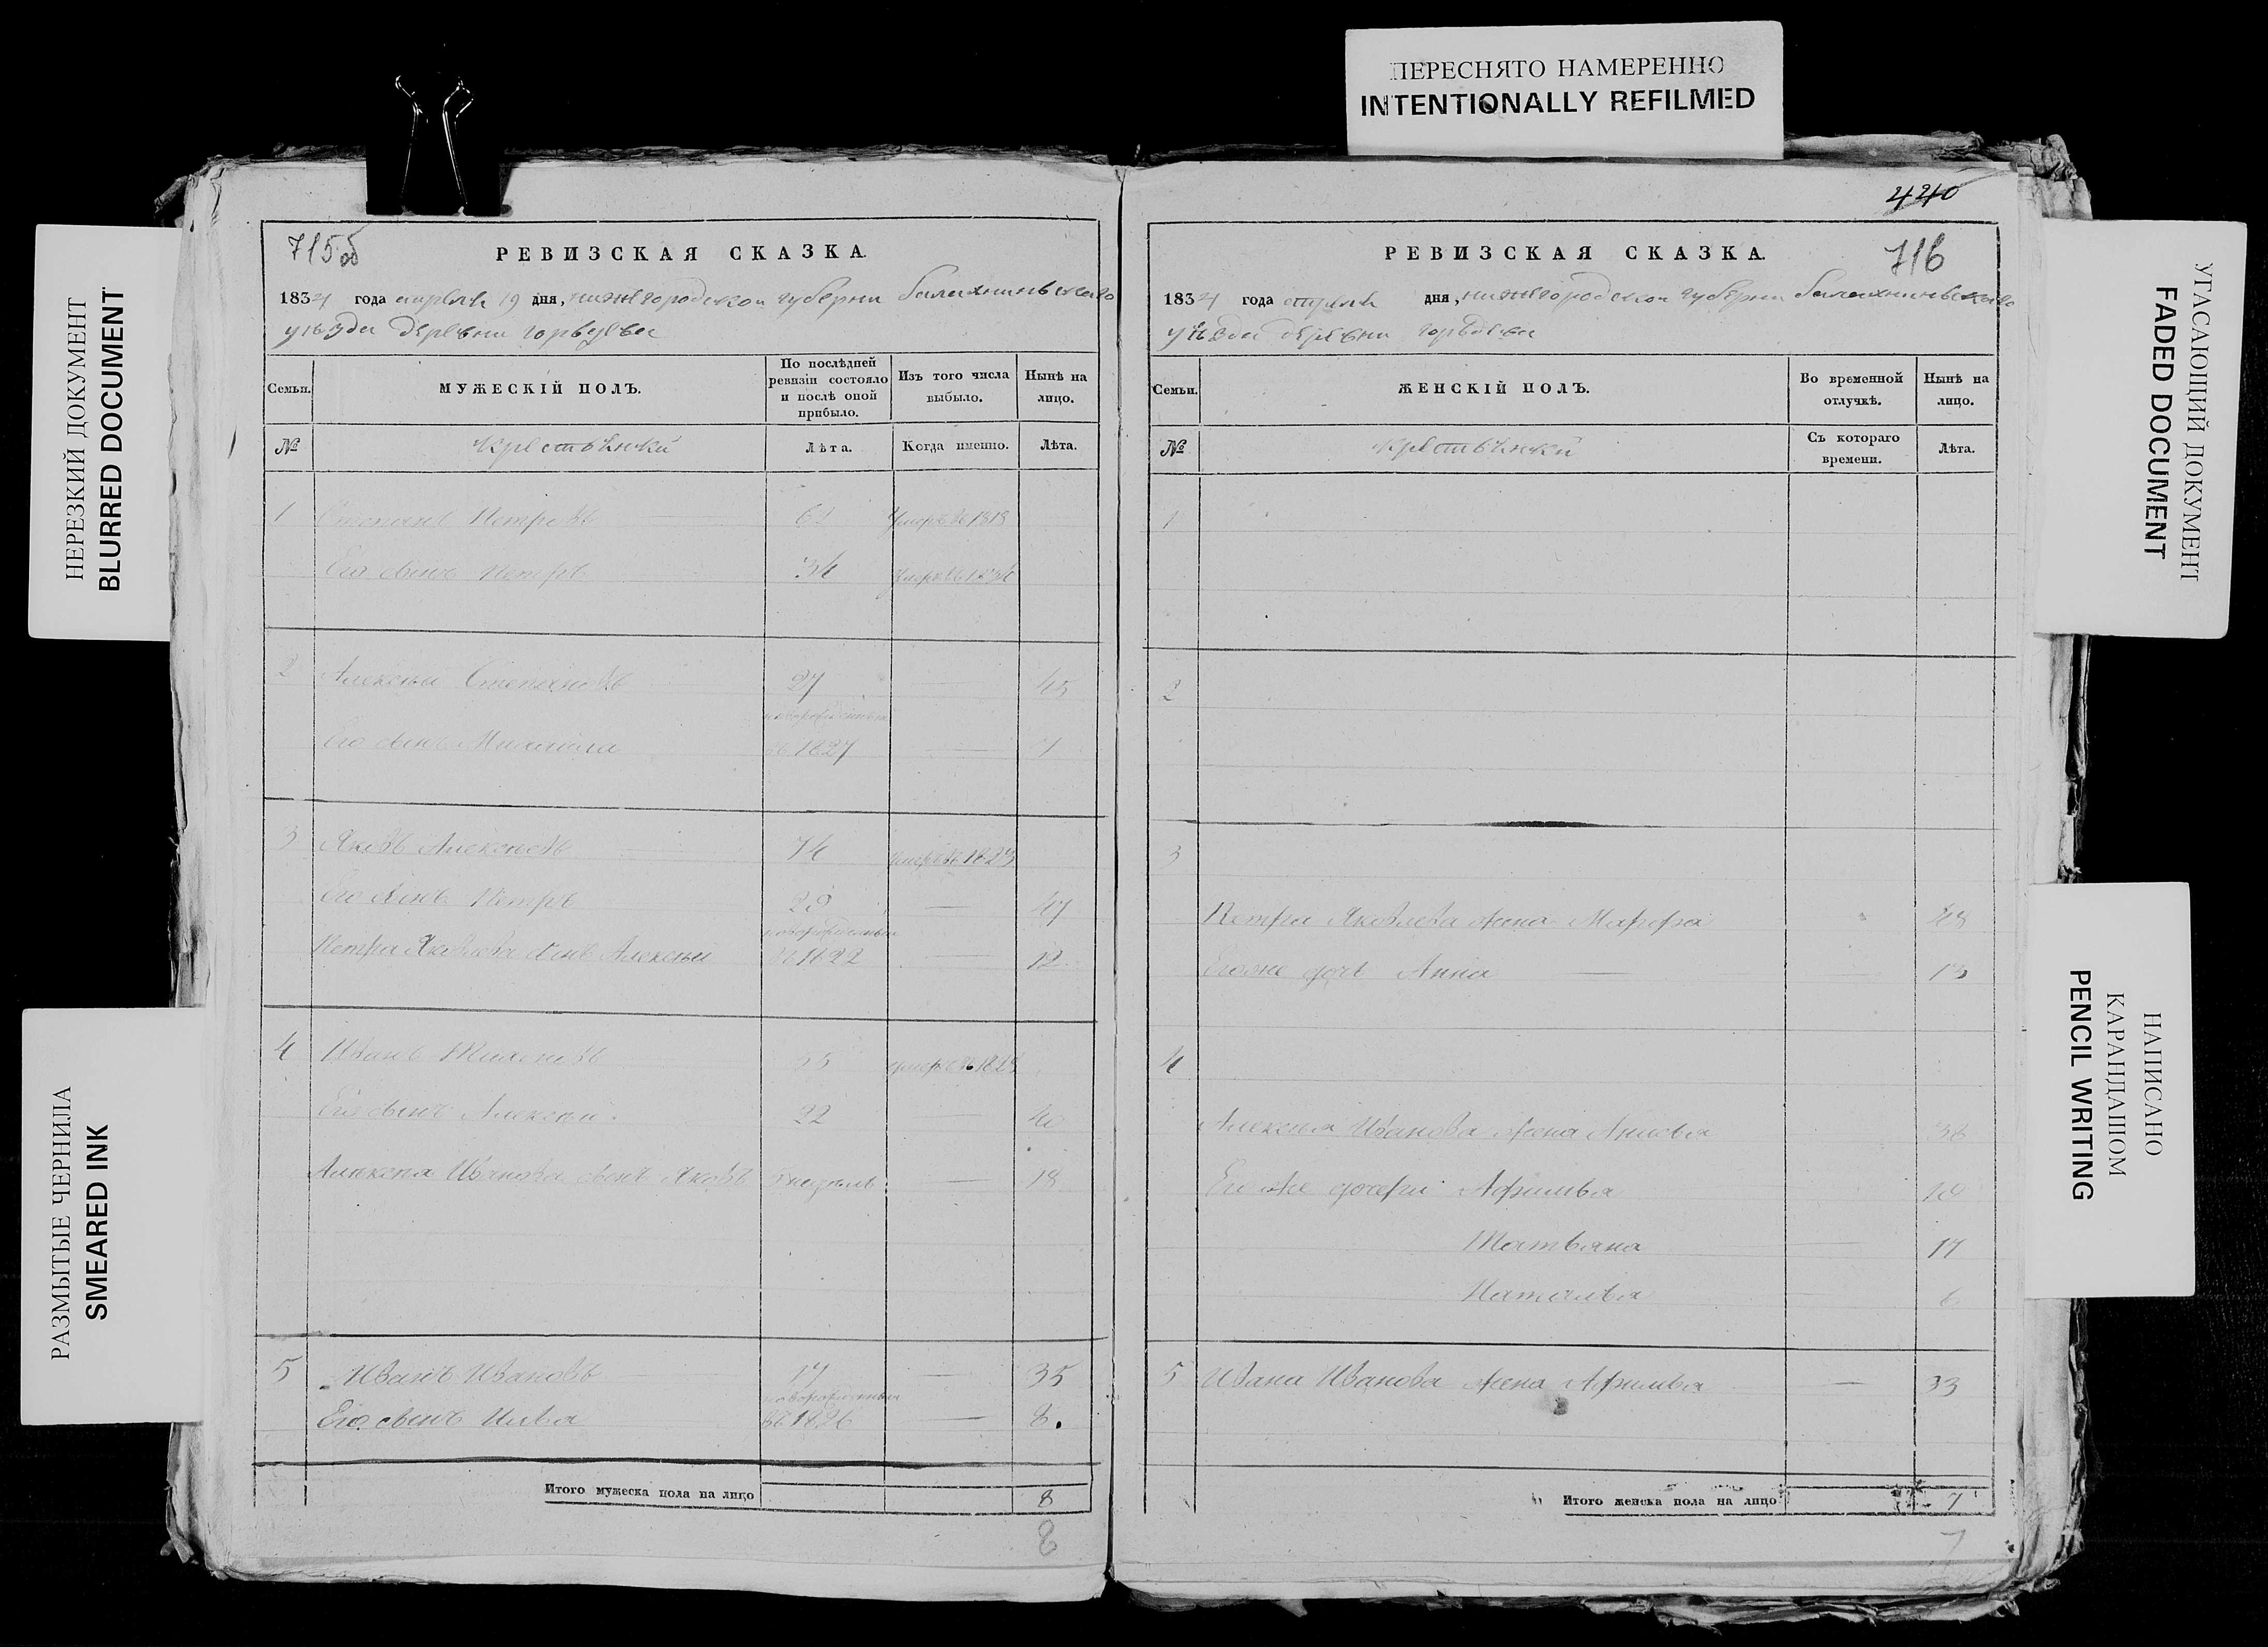 ПЕРЕСНЯТО НАМЕРЕННО
INTENTIONALLY REFILMED
НЕРЕЗКИЙ ДОКУМЕНТ
BLURRED DOCUMENT
РАЗМЫТЫЕ ЧЕРНИЛА
SMEARED INK
715 об
РЕВИЗСКАЯ СКАЗКА.
1834 года апреля 19 дня, нижегородской губерни балахнинскаго
уезда деревни
Семьи. МУЖЕСКІЙ ПОЛЪ. По послѣдней ревизіи состояло и послѣ оной прибыло. Изъ того числа выбыло. Нынѣ на лицо.
№ Лѣта. Когда именно. Лѣта.
1 Степанъ Петровъ 61 умеръ въ 1818
Его сынъ Петръ 34 умеръ въ 1834
2 Алексеи Степановъ 27 — 45
новорожденныи
Его сынъ въ 1827 — 7
3 Яковъ Алексеевъ 74 умеръ въ 1823
Его сынъ Петръ 29 — 47
новорожденныи
Петра Яковлева сынъ Алексеи въ 1822 — 12
4 Иванъ 55
Его сынъ Алексеи 22 — 40
Алексея Иванова сынъ Яковъ — 18
5 Иванъ Ивановъ 17 — 35
новорожденныи
Его сынъ Илья въ 1826 — 8.
Итого мужеска пола на лицо 8
8
440
716
РЕВИЗСКАЯ СКАЗКА.
1834 года апреля дня, нижегородской губерни балахнинскаго
уезда деревни
Семьи. ЖЕНСКІЙ ПОЛЪ. Во временной отлучкѣ. Нынѣ на лицо.
№ Съ котораго времени. Лѣта.
1
2
3
Петра Яковлева жена Марфа
Егоже дочь Анна — 13
4
Алексея Иванова жена 36
Его же дочери Афимья
Татьяна — 17
Наталья 6
5 Ивана Иванова жена Афимья — 33
Итого женска пола на лицо 7
7
УГАСАЮЩИЙ ДОКУМЕНТ
FADED DOCUMENT
НАПИСАНО КАРАНДАШОМ
PENCIL WRITING